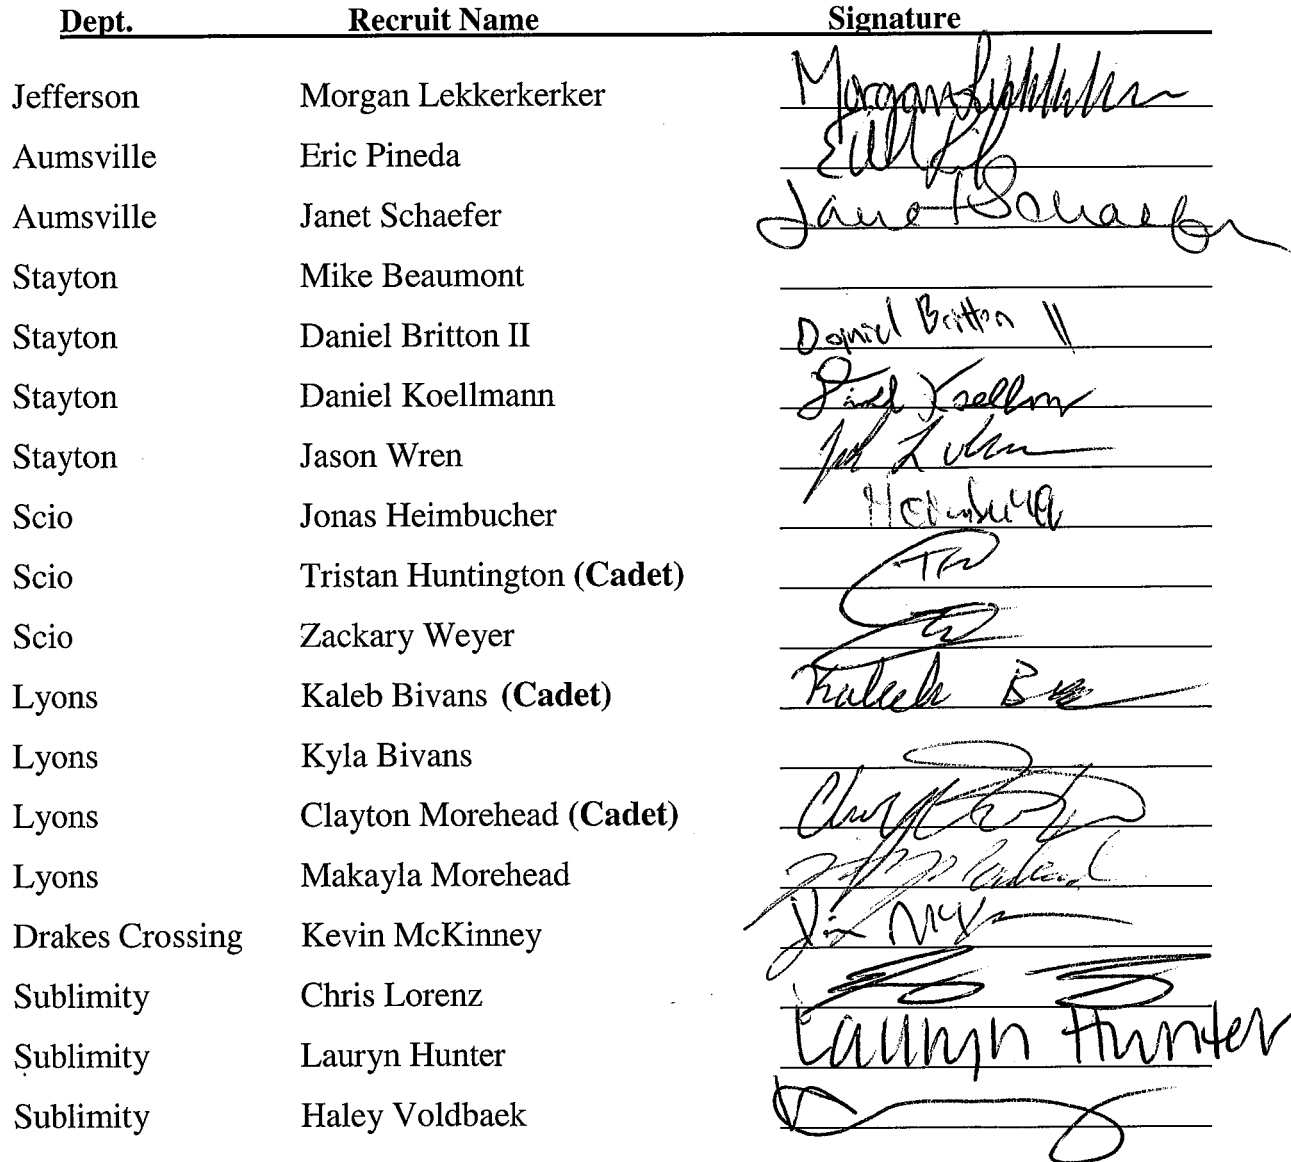 Dept. Recruit Name Signature
Jefferson Morgan Lekkerkerker Morgan
Aumsville Eric Pineda
Aumsville Janet Schaefer Janet Schaefer
Stayton Mike Beaumont
Stayton Daniel Britton II Daniel Britton II
Stayton Daniel Koellmann
Stayton Jason Wren
Scio Jonas Heimbucher
Scio Tristan Huntington (Cadet)
Scio Zackary Weyer
Lyons Kaleb Bivans (Cadet) Kaleb
Lyons Kyla Bivans
Lyons Clayton Morehead (Cadet)
Lyons Makayla Morehead
Drakes Crossing Kevin McKinney
Sublimity Chris Lorenz
Sublimity Lauryn Hunter Lauryn Hunter
Sublimity Haley Voldbaek